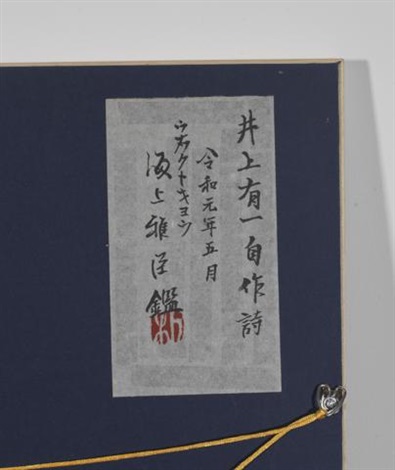 井上有一自作詩
令和元年五月
ウナックトキヨウ
海上雅臣鑑